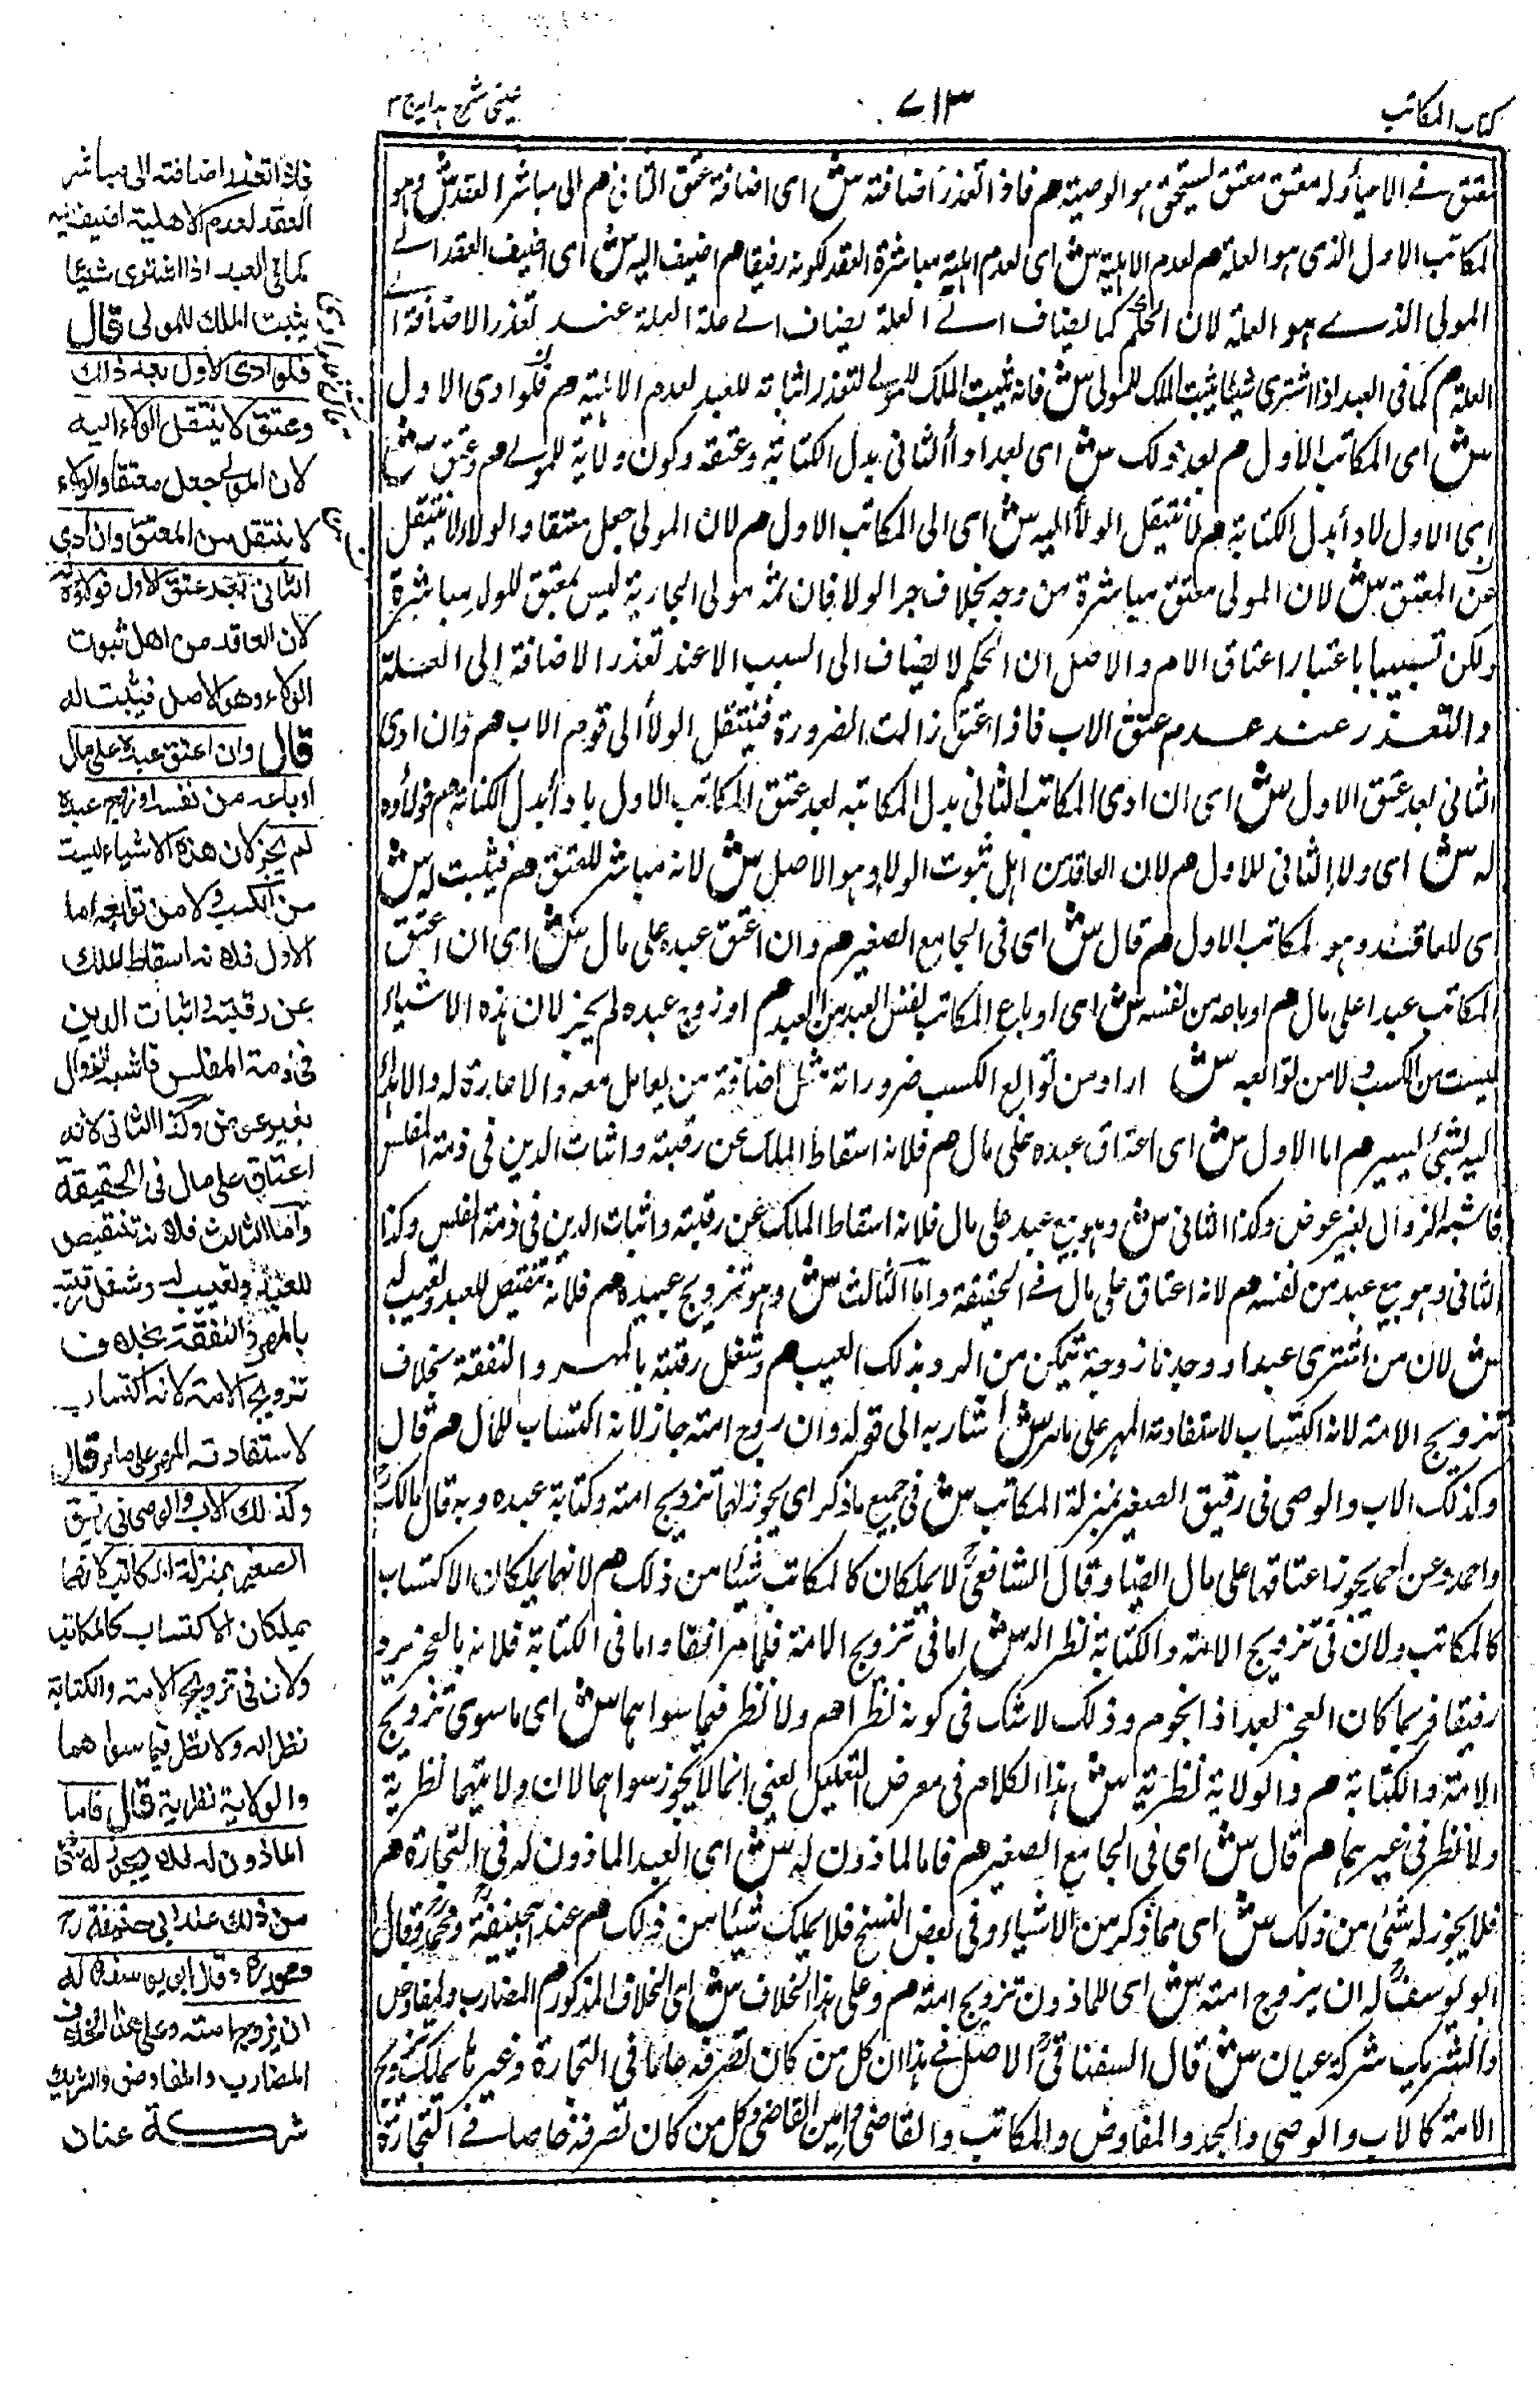 كتاب المكاتب
٧١٣
عینی شرح ہدایہ ج ٣
معتق في الاحياء وله معتق معتق ليستحق هو الوصية هم فاذا تعذر اضافته ش اى اضافة عتق الثانى هم الى مباشر العقد ش وهو
المكاتب الاول الذى هو العلة هم لعدم الاهلية ش اى لعدم اهلية مباشرة العقد لكونه رقيقا هم اضيف اليه ش اى اضيف العقد الى
المولى الذى هو العلة لان الحكم كما يضاف الى العلة يضاف الى علة العلة عند تعذر الاضافة الى
العلة هم كما فى العبد اذا اشترى شيئا يثبت الملك للمولى ش فانه يثبت الملك للمولى لتعذر اثباته للعبد لعدم الاهلية هم فلو ادى الاول
ش اى المكاتب الاول هم بعد ذلك ش اى بعد اداء الثانى بدل الكتابة وعتقه وكون ولائه للمولى هم وعتق ش
اى الاول لاداء بدل الكتابة هم لا ينتقل الولاء اليه ش اى الى المكاتب الاول هم لان المولى جعل معتقا والولاء لا ينتقل
عن المعتق ش لان المولى معتق مباشرة من وجه بخلاف جر الولاء فان ثمه مولى الجارية ليس بمعتق للولد مباشرة
ولكن تسبيبا باعتبار اعتاق الام والاصل ان الحكم لا يضاف الى السبب الا عند تعذر الاضافة إلى العلة
والتعذر عند عدم عتق الاب فاذا عتق زالت الضرورة فينتقل الولاء الى قوم الاب هم وان ادى
الثانى بعد عتق الاول ش اى ان ادى المكاتب الثانى بدل المكاتبه بعد عتق المكاتب الاول باداء بدل الكتابة هم فولاؤه
له ش اى ولاء الثانى للاول هم لان العاقد من اهل ثبوت الولاء وهو الاصل ش لانه مباشر للعتق هم فيثبت له ش
اى للعاقد وهو المكاتب الاول هم قال ش اى فى الجامع الصغير هم وان اعتق عبده على مال ش اى ان اعتق
المكاتب عبدا على مال هم او باعه من نفسه ش اى او باع المكاتب نفس العبد من العبد هم او زوج عبده لم يجز لان هذه الاشياء
ليست من الكسب ولا من توابعه ش اراد من توابع الكسب ضروراته مثل اضافة من يعامل معه والاعارة له والاهداء
اليه لشئ يسير هم اما الاول ش اى اعتاق عبده على مال هم فلانه اسقاط الملك عن رقبته واثبات الدين فى ذمة المفلس
فاشبه الزوال بغير عوض وكذا الثانى ش وهو بيع عبد على مال فلانه اسقاط الملك عن رقبته واثبات الدين فى ذمة المفلس وكذا
الثانى وهو بيع عبد من نفسه هم لانه اعتاق على مال فى الحقيقة واما الثالث ش وهو تزويج عبيده هم فلانه تنقيص للعبد وتعييب له
ش لان من اشترى عبدا ووجد ذا زوجة يتمكن من الرد بذلك العيب هم وشغل رقبته بالمهر والنفقة بخلاف
تزويج الامة لانه اكتساب لاستفادته المهر على ما مر ش اشار به الى قوله وان زوج امته جاز لانه اكتساب للمال هم قال
وكذلك الاب والوصى فى رقيق الصغير بمنزلة المكاتب ش فى جميع ما ذكر اى يجوز لهما تزويج امته وكتابة عبده وبه قال مالك
واحمد وعن احمد يجوز اعتاقها على مال ايضا وقال الشافعى لا يملكان كالمكاتب شيئا من ذلك هم لانهما يملكان الاكتساب
كالمكاتب ولان فى تزويج الامة والكتابة نظر اله ش اما فى تزويج الامة فلما مر انفقا واما فى الكتابة فلانه بالعجز يرد
رقيقا فربما كان العجز بعد اداء نجوم وذلك لا شك فى كونه نظرا هم ولا نظر فيما سواهما ش اى ما سوى تزويج
الامة والكتابة هم والولاية نظرية ش هذا الكلام فى معرض التعليل يعنى انما لا يجوز سواهما لان ولايتهما نظرية
ولا نظر فى غيرهما هم قال ش اى فى الجامع الصغير هم فاما الماذون له ش اى العبد الماذون له فى التجارة هم
فلا يجوز له شئ من ذلك ش اى مما ذكر من الاشياء وفى بعض النسخ فلا يملك شيئا من ذلك هم عند ابيحنيفة ومحمد وقال
ابو يوسف له ان يزوج امته ش اى للماذون تزويج امته هم وعلى هذا الخلاف ش اى الخلاف المذكور هم المضارب والمفاوض
والشريك شركة عنان ش قال السغناقى الاصل فى هذا ان كل من كان تصرفه عاما فى التجارة وغيرها يملك تزويج
الامة كالاب والوصى والجد والمفاوض والمكاتب والقاضى وامين القاضى وكل من كان تصرفه خاصا فى التجارة
فاذا تعذر اضافته الى مباشر
العقد لعدم الاهلية اضيف اليه
كما فى العبد اذا اشترى شيئا
يثبت الملك للمولى قال
فلو ادى الاول بعد ذلك
وعتق لا ينتقل الولاء اليه
لان المولى جعل معتقا والولاء
لا ينتقل من المعتق وان ادى
الثانى بعد عتق الاول فولاؤه له
لان العاقد من اهل ثبوت
الولاء وهو الاصل فيثبت له
قال وان اعتق عبده على مال
او باعه من نفسه او زوج عبده
لم يجز لان هذه الاشياء ليست
من الكسب ولا من توابعه اما
الاول فلانه اسقاط الملك
عن رقبته واثبات الدين
فى ذمة المفلس فاشبه الزوال
بغير عوض وكذا الثانى لانه
اعتاق على مال فى الحقيقة
واما الثالث فلانه تنقيص
للعبد وتعييب له وشغل رقبته
بالمهر والنفقة بخلاف
تزويج الامة لانه اكتساب
لاستفادته المهر على ما مر قال
وكذلك الاب والوصى فى رقيق
الصغير بمنزلة المكاتب لانهما
يملكان الاكتساب كالمكاتب
ولان فى تزويج الامة والكتابة
نظرا له ولا نظر فيما سواهما
والولاية نظرية قال فاما
الماذون له فلا يجوز له شئ
من ذلك عند ابى حنيفة رح
ومحمد رح وقال ابو يوسف رح له
ان يزوج امته وعلى هذا الخلاف
المضارب والمفاوض والشريك
شركة عنان